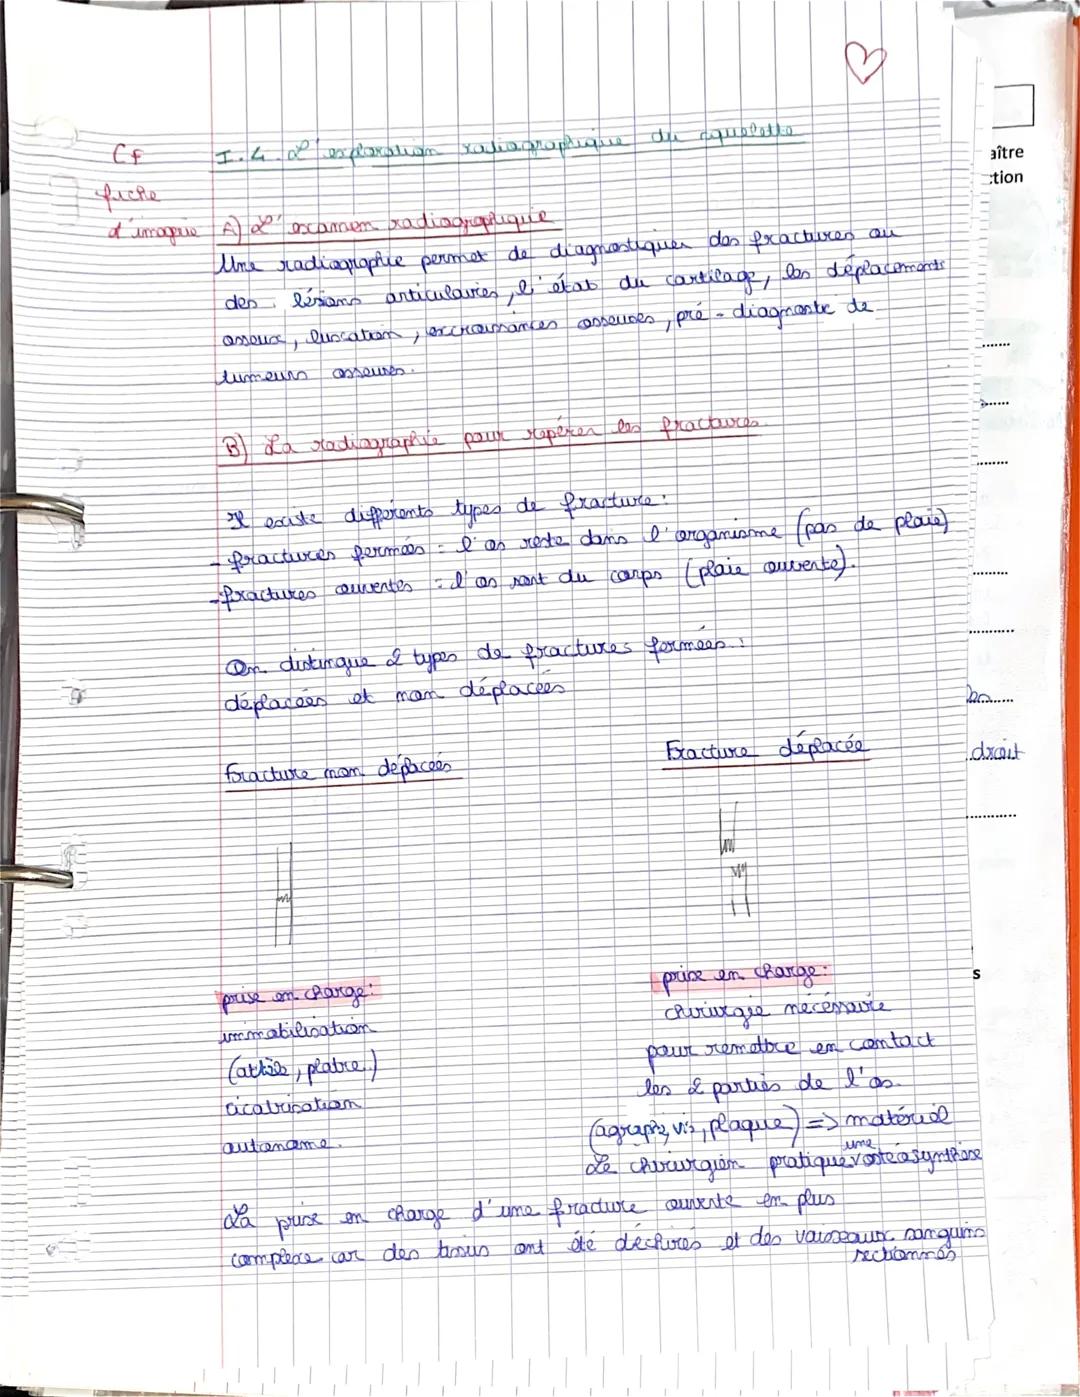 Cf
fiche
d'imagerie
I.4. L'exploration radiographique du squelette
A) L'examen radiographique
Une radiographie permet de diagnostiquer des fractures ou
des lésions articulaires, l'état du cartilage, les déplacements
osseux, luxation, excroissances osseuses, pré-diagnostic de
tumeurs osseuses.
B) La radiographie pour repérer les fractures.
Il existe différents types de fracture :
- fractures fermées = l'os reste dans l'organisme (pas de plaie)
- fractures ouvertes = l'os sort du corps (plaie ouverte).
On distingue 2 types de fractures fermées :
déplacées et non déplacées
fracture non déplacées
Fracture déplacée
prise en charge :
immobilisation
(attèle, platre)
cicatrisation
autonome.
prise en charge :
chirurgie nécessaire
pour remettre en contact
les 2 parties de l'os.
(agraphe, vis, plaque) => matériel
Le chirurgien pratique une ostéosynthèse
La prise en charge d'une fracture ouverte en plus
complexe car des tissus ont été déchirés et des vaisseaux sanguins
sectionnés
aître
ction
droit
s